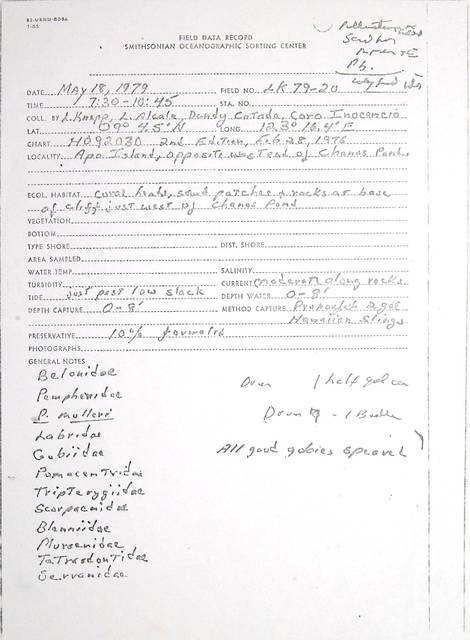 SI-MNNH-808a
7-65
FIELD DATA RECORD
SMITHSONIAN OCEANOGRAPHIC SORTING CENTER
DATE May 18, 1979 FIELD NO. LK 79-20
TIME 7:30-10:45 STA. NO.
COLL. BY L. Knapp, L. Alcala, Dandy Catada, Caro Inocencio
LAT 09° 4.5' N LONG 123° 16.4' E
CHART H092030 2nd Edition, Feb 28, 1976
LOCALITY Apo Island, opposite west end of Chanos Pond.
ECOL. HABITAT Coral heads, sand patches & rocks at base
of cliff just west of Chanos Pond
VEGETATION
BOTTOM
TYPE SHORE DIST. SHORE
AREA SAMPLED
WATER TEMP. SALINITY
TURBIDITY CURRENT moderate along rocks
TIDE just past low slack DEPTH WATER 0-8'
DEPTH CAPTURE 0-8' METHOD CAPTURE Pronoxfish 2 gal
Hawaiian Slings
PRESERVATIVE 10% formalin
PHOTOGRAPHS
GENERAL NOTES
Belonidae
Pempheridae 1 half gal can
P. mulleri
Labridae
Gobiidae All good gobies
Pomacentridae
Tripterygiidae
Scorpaenidae
Blenniidae
Muraenidae
Tetraodontidae
Serranidae